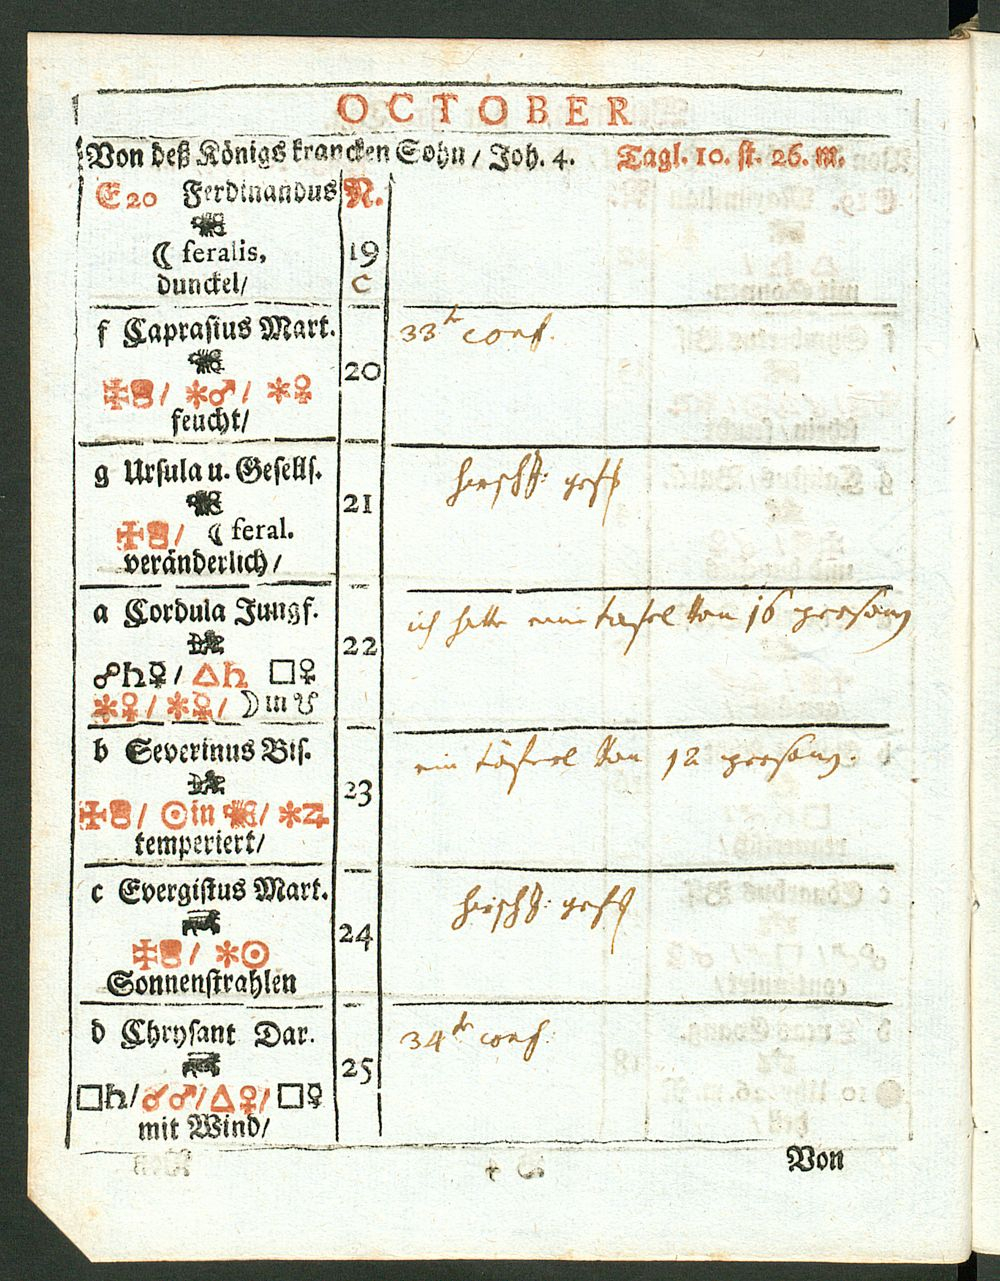 OCTOBER
Von deß Königs krancken Sohn / Joh. 4. Tagl. 10. st. 26. M.
E 20 Ferdinandus N.
☾ feralis, 19
dunckel/ C
f Caprasius Mart. 33te conf.
20
✠ / ✱♂ / ✱♀
feucht/
g Ursula u. Gesells.
21
✠ / ☾ feral.
veränderlich /
a Cordula Jungf. ich hatte eine tafel von 16 persohn
22
☍♄☿ / △♄ □♀
✱♀ / ✱☿ / ☽ in ☋
b Severinus Bis. ein täferl von 12 persohn.
23
✠ / ☉ in ♏ / ✱♃
temperiert/
c Evergistus Mart.
24
✠ / ✱☉
Sonnenstrahlen
d Chrysant Dar. 34te conf:
25
□♄/☌♂/△♀/□☿
mit Wind/
Von